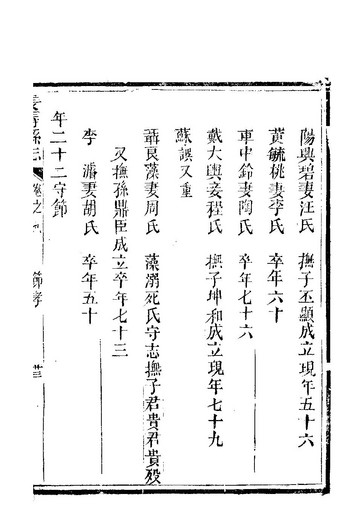 陽興碧妻汪氏　撫子丕顯成立現年五十六
黃毓桃妻李氏　卒年六十
車中鈴妻陶氏　卒年七十六
戴大輿妾程氏　撫子坤和成立現年七十九
蘇誤又重
聶艮藻妻周氏　藻溺死氏守志撫子君貴君貴殁
又撫孫鼎臣成立卒年七十三
李　濬妻胡氏　卒年五十
年二十二守節
卷之九　節孝